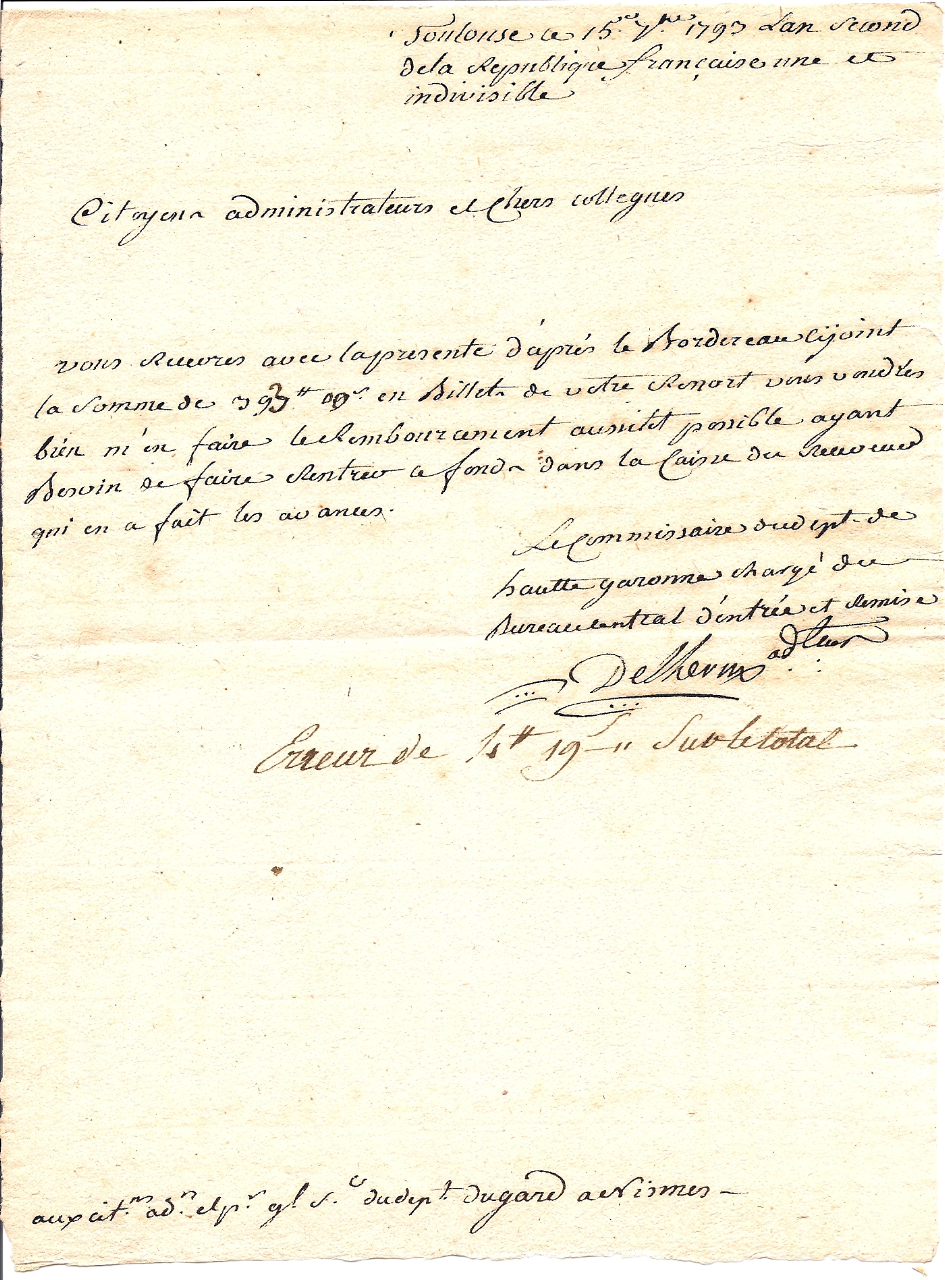 Toulouse le 15.e 7.bre 1793 Lan Second
dela Republique françaiseune et
indivisible
Citoyens administrateurs et Chers collegues
vous Recevres avec lapresente d'aprés le Bordereau cijoint
la Somme de 393tt 09s en Billets de votre Ressort vous voudrés
bien m'en faire le Remboursement aussitôt possible ayant
Besoin de faire Rentrer ce fonds dans la Caisse du Receveur
qui en a fait les avances.
Le Commissaire dudept. de
hautte garonne chargé du
Bureaucentral d'entrée et Remise
Delherm adteur
Erreur de tt 19s " Sur letotal
aux cit.ens ad.rs et p.r gl S.c dudept. dugard a Nismes